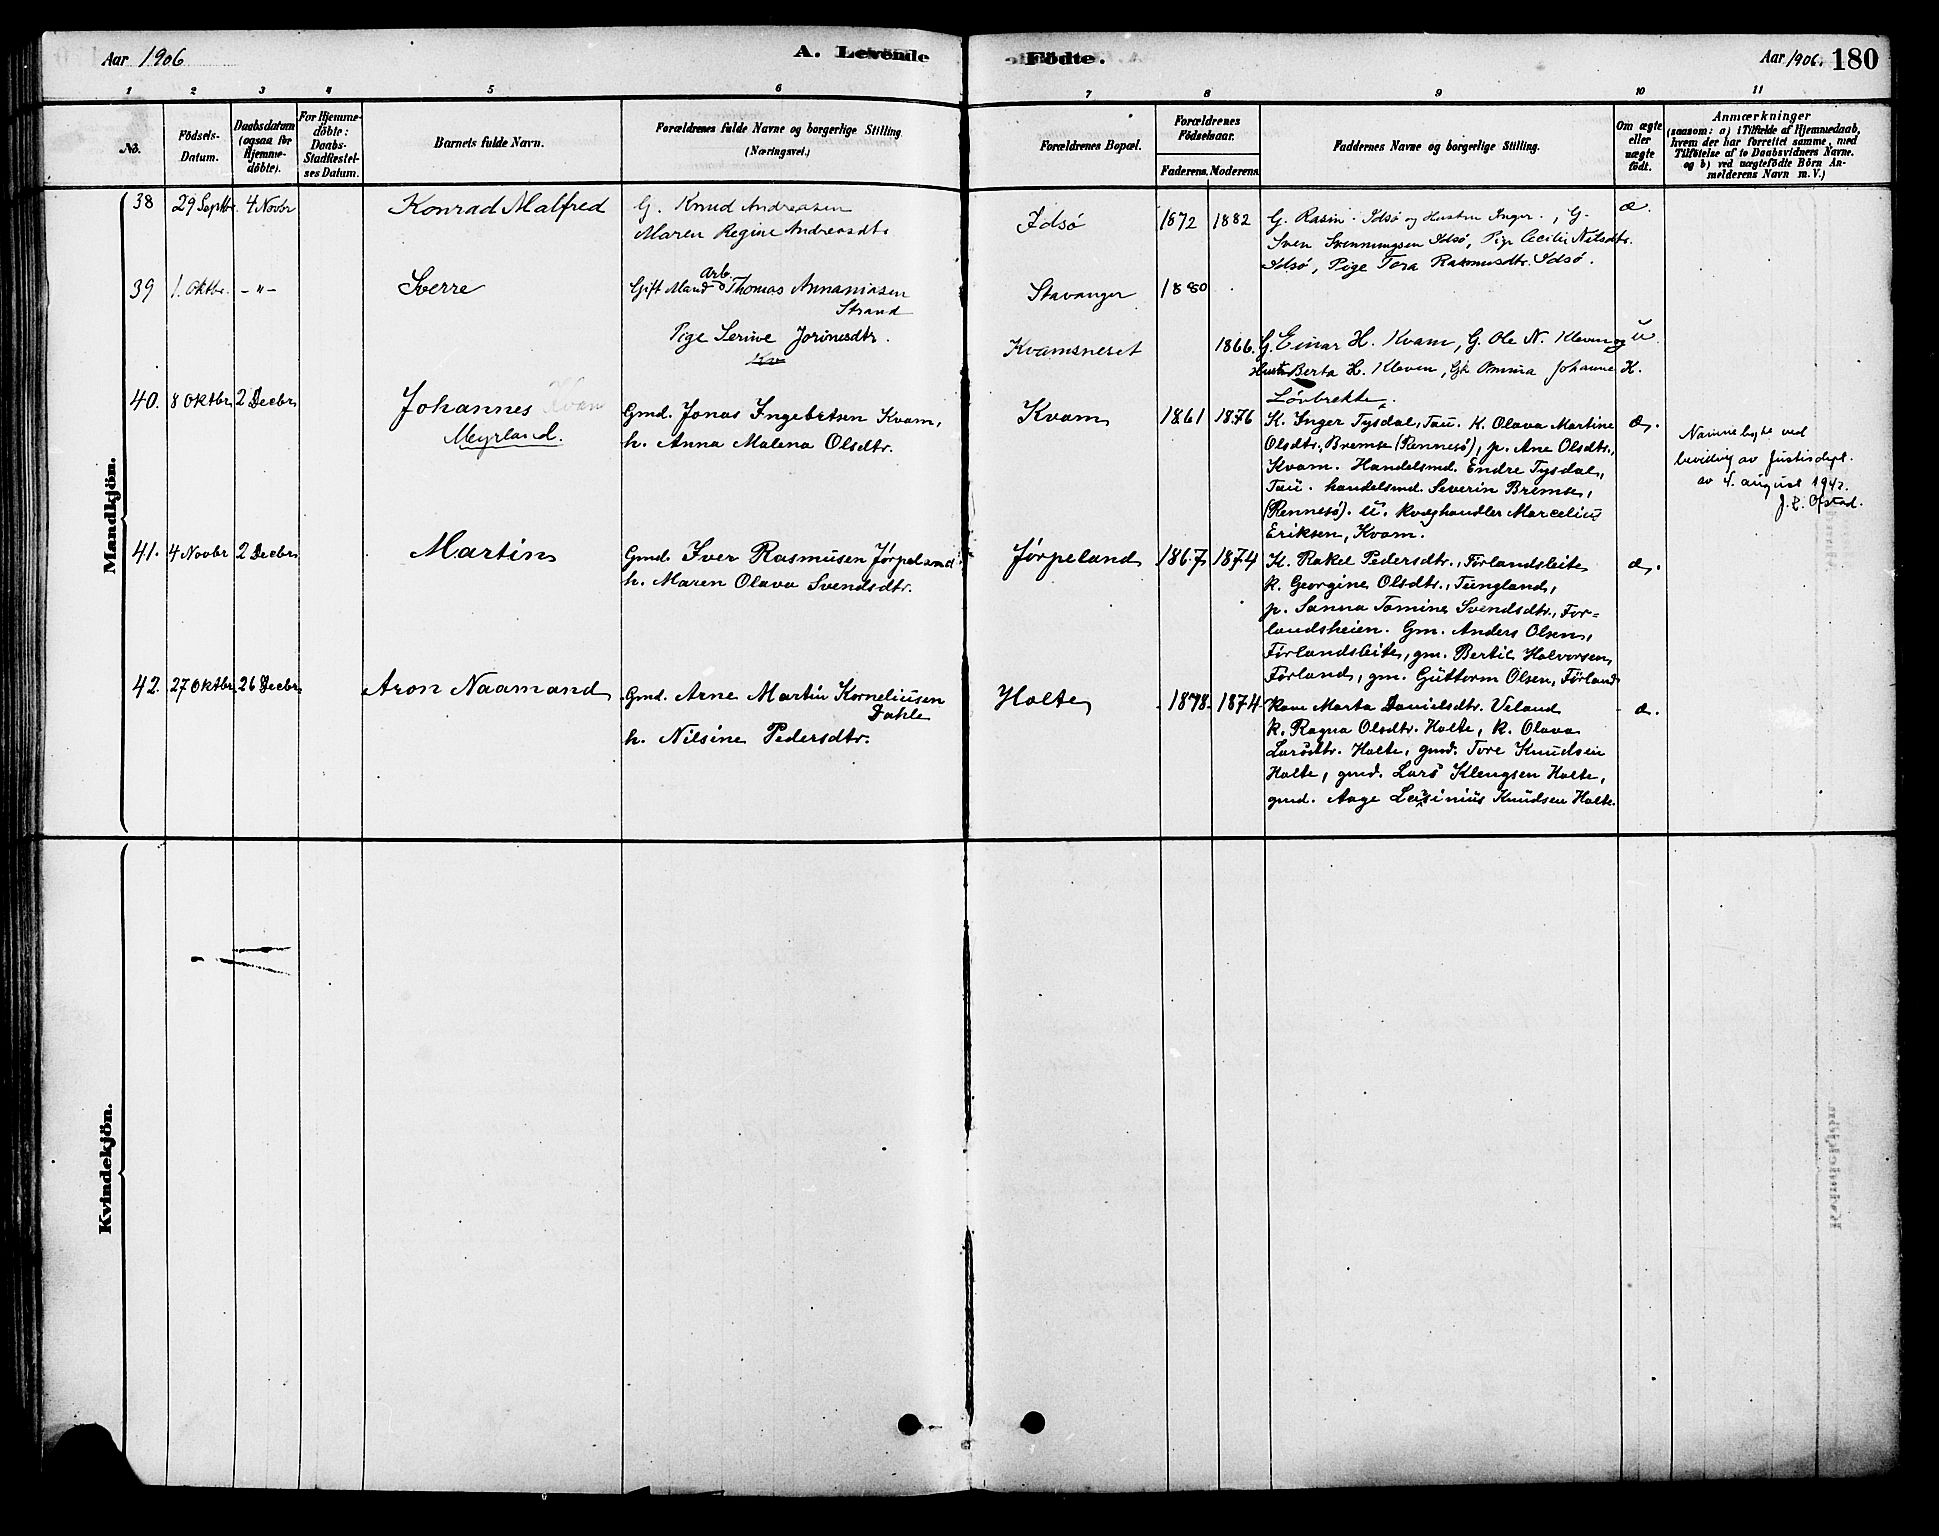 Aar 1906
A. Levende
Födte.
Aar 1906.
180
1 2 3 4 5 6 7 8 9 10 11
No.
Födsels-
Datum.
Daabsdatum
(ogsaa for
Hjemme-
döbte).
For Hjemme-
döbte:
Daabs-
Stadfæstel-
ses Datum.
Barnets fulde Navn.
Forældrenes fulde Navne og borgerlige Stilling
(Næringsvei.)
Forældrenes Bopæl.
Forældrenes
Födselsaar.
Faderens. Moderens.
Faddernes Navne og borgerlige Stilling.
Om ægte
eller
uægte
födt.
Anmærkninger
(saasom: a) i Tilfælde af Hjemmedaab,
hvem der har forrettet samme, med
Tilföielse af to Daabsvidners Navne.
og b) ved uægtefödte Börn An-
melderens Navn m. V.)
Mandkjön.
38 29 Septbr 4 Novbr
Konrad Malfred
G. Knud Andreasen
Maren Regine Andreasdtr
Idsø
1872 1882
G. Rasm. Idsø og Hustru Inger., G.
Sven Svenningsen Idsø, Pige Cecilie Nilsdtr.
Idsø, Pige Tora Rasmusdtr. Idsø.
æ.
39 1. Oktbr. -"-
Sverre
Gift Mand Arb. Thomas Annaniasen
Strand
Pige Serine Jorinesdtr.
Kv
Stavanger
1880
Kvamsneset
1866.
G. Einar H. Kvam, G. Ole N. Kleven og
Hustru Berta H. Kleven, Johanne H.
Løvbrekke.
u.
40. 8 Oktbr 2 Decbr
Johannes Kvam
Meyrland.
Gmd. Jonas Ingebretsen Kvam,
h. Anna Malena Olsdtr.
Kvam
1861 1876
K. Inger Tysdal, Tau. K. Olava Martine
Olsdtr., Bremse (Rennesø), p. Ane Olsdtr.,
Kvam. Handelsmd. Endre Tysdal,
Tau. handelsmd. Severin Bremse,
(Rennesø). u. kvæghandler Marcelius
Eriksen, Kvam.
æ.
Navnebyte ved
bevilling av Justisdept.
av 4. august 1942.
J. E. Ofstad.
41. 4 Novbr 2 Decbr
Martin
Gmd. Iver Rasmusen Jørpeland
h. Maren Olava Svendsdtr.
Jørpeland
1867 1874
K. Rakel Pedersdtr., Förlandsleite
k. Georgine Olsdtr., Tungland,
p. Sanna Tomine Svendsdtr., For-
landsheien. Gm. Anders Olsen,
Förlandsleite, gm. Bertil Halvorsen
Förland, gm. Guttorm Olsen, Förland
æ.
42. 27 Oktbr 26 Decbr
Aron Naamand
Gmd. Arne Martin Korneliusen
Dahle
h. Nilsine Pedersdtr.
Holte
1878 1874
Kone Marta Danielsdtr. Veland
k. Ragna Olsdtr. Holte, k. Olava
Larsdtr. Holte, gmd. Tore Knudsen
Holte, gmd. Lars Klengsen Holte,
gmd. Aage Knudsen Holte.
æ.
Kvindekjön.